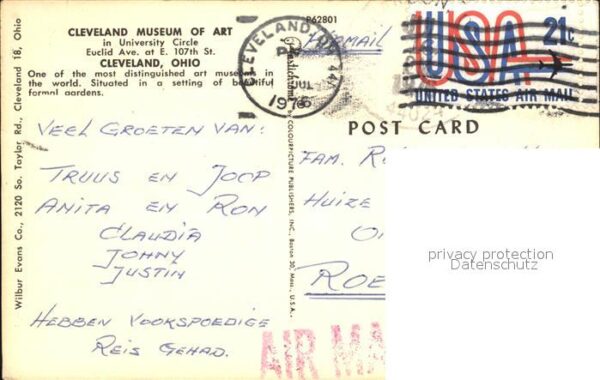 CLEVELAND MUSEUM OF ART
in University Circle
Euclid Ave. at E. 107th St.
CLEVELAND, OHIO
One of the most distinguished art museums in
the world. Situated in a setting of beautiful
formal gardens.
P62801
AIRMAIL
CLEVELAND, OH 441
PM
JUL
1976
USA
21c
UNITED STATES AIR MAIL
POST CARD
VEEL GROETEN VAN:
TRUUS EN JOOP
ANITA EN RON
CLAUDIA
JOHNY
JUSTIN
HEBBEN VOORSPOEDIGE
REIS GEHAD.
FAM.
HUIZE
ROE
AIR MA
privacy protection
Datenschutz
Wilbur Evans Co., 2120 So. Taylor Rd., Cleveland 18, Ohio
Plastichrome by COLOURPICTURE PUBLISHERS, INC., Boston 30, Mass., U.S.A.